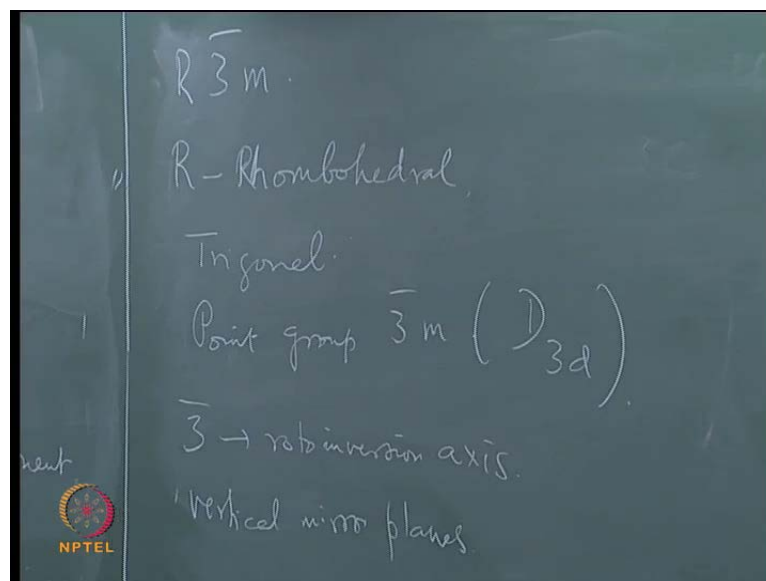 R 3̅ m.
R - Rhombohedral,
Trigonal.
Point group 3̅ m ( D3d ).
3̅ → rotoinversion axis.
vertical mirror planes.
NPTEL